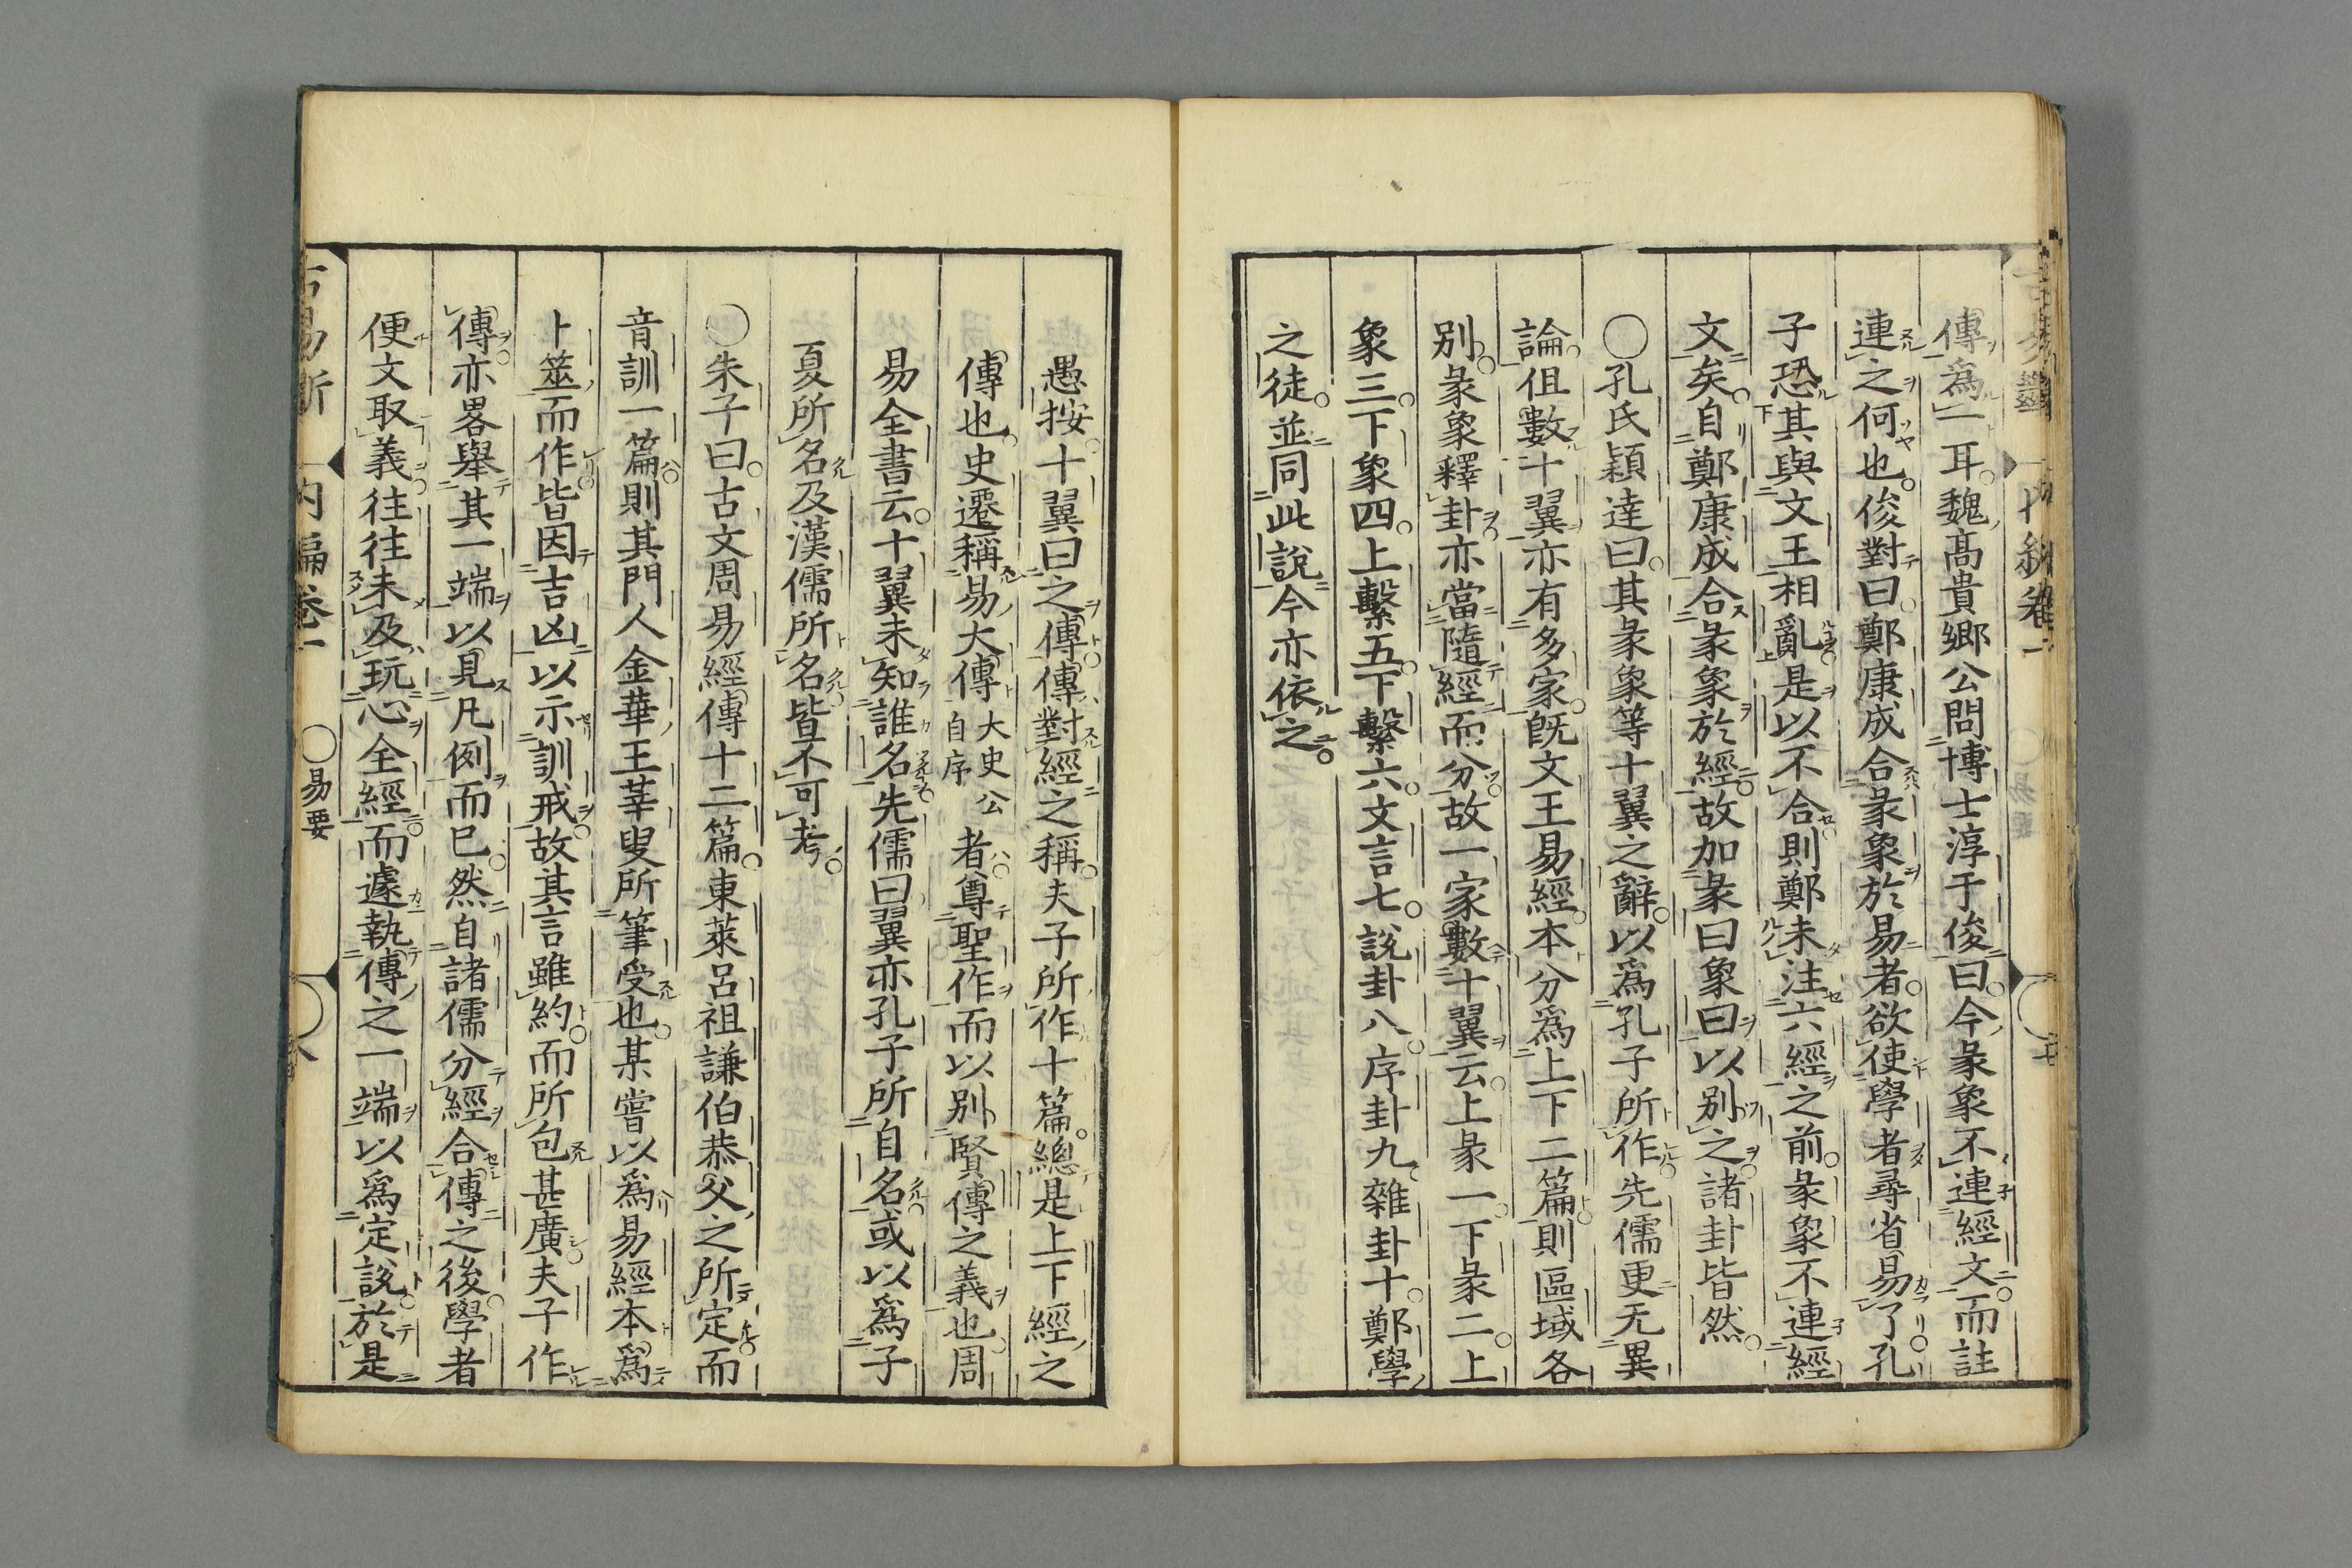 傳爲一耳魏高貴鄉公問博士淳于俊曰今彖象不連經文而註
連之何也俊對曰鄭康成合彖象於易者欲使學者尋省易了孔
子恐其與文王相亂是以不合則鄭未注六經之前彖象不連經
文矣自鄭康成合彖象於經故加彖曰象曰以別之諸卦皆然
○孔氏穎達曰其彖象等十翼之辭以爲孔子所作先儒更无異
論但數十翼亦有多家既文王易經本分爲上下二篇則區域各
別彖象釋卦亦當隨經而分故一家數十翼云上彖一下彖二上
象三下象四上繫五下繫六文言七說卦八序卦九雜卦十鄭學
之徒並同此說今亦依之
愚按十翼曰之傳傳對經之稱夫子所作十篇總是上下經之
傳也史遷稱易大傳大史公自序者尊聖作而以別賢傳之義也周
易全書云十翼未知誰名先儒曰翼亦孔子所自名或以爲子
夏所名及漢儒所名皆不可考
○朱子曰古文周易經傳十二篇東萊呂祖謙伯恭父之所定而
音訓一篇則其門人金華王莘叟所筆受也某嘗以爲易經本爲
卜筮而作皆因吉凶以示訓戒故其言雖約而所包甚廣夫子作
傳亦畧舉其一端以見凡例而已然自諸儒分經合傳之後學者
便文取義往往未及玩心全經而遽執傳之一端以爲定說於是
內編卷一
○易要